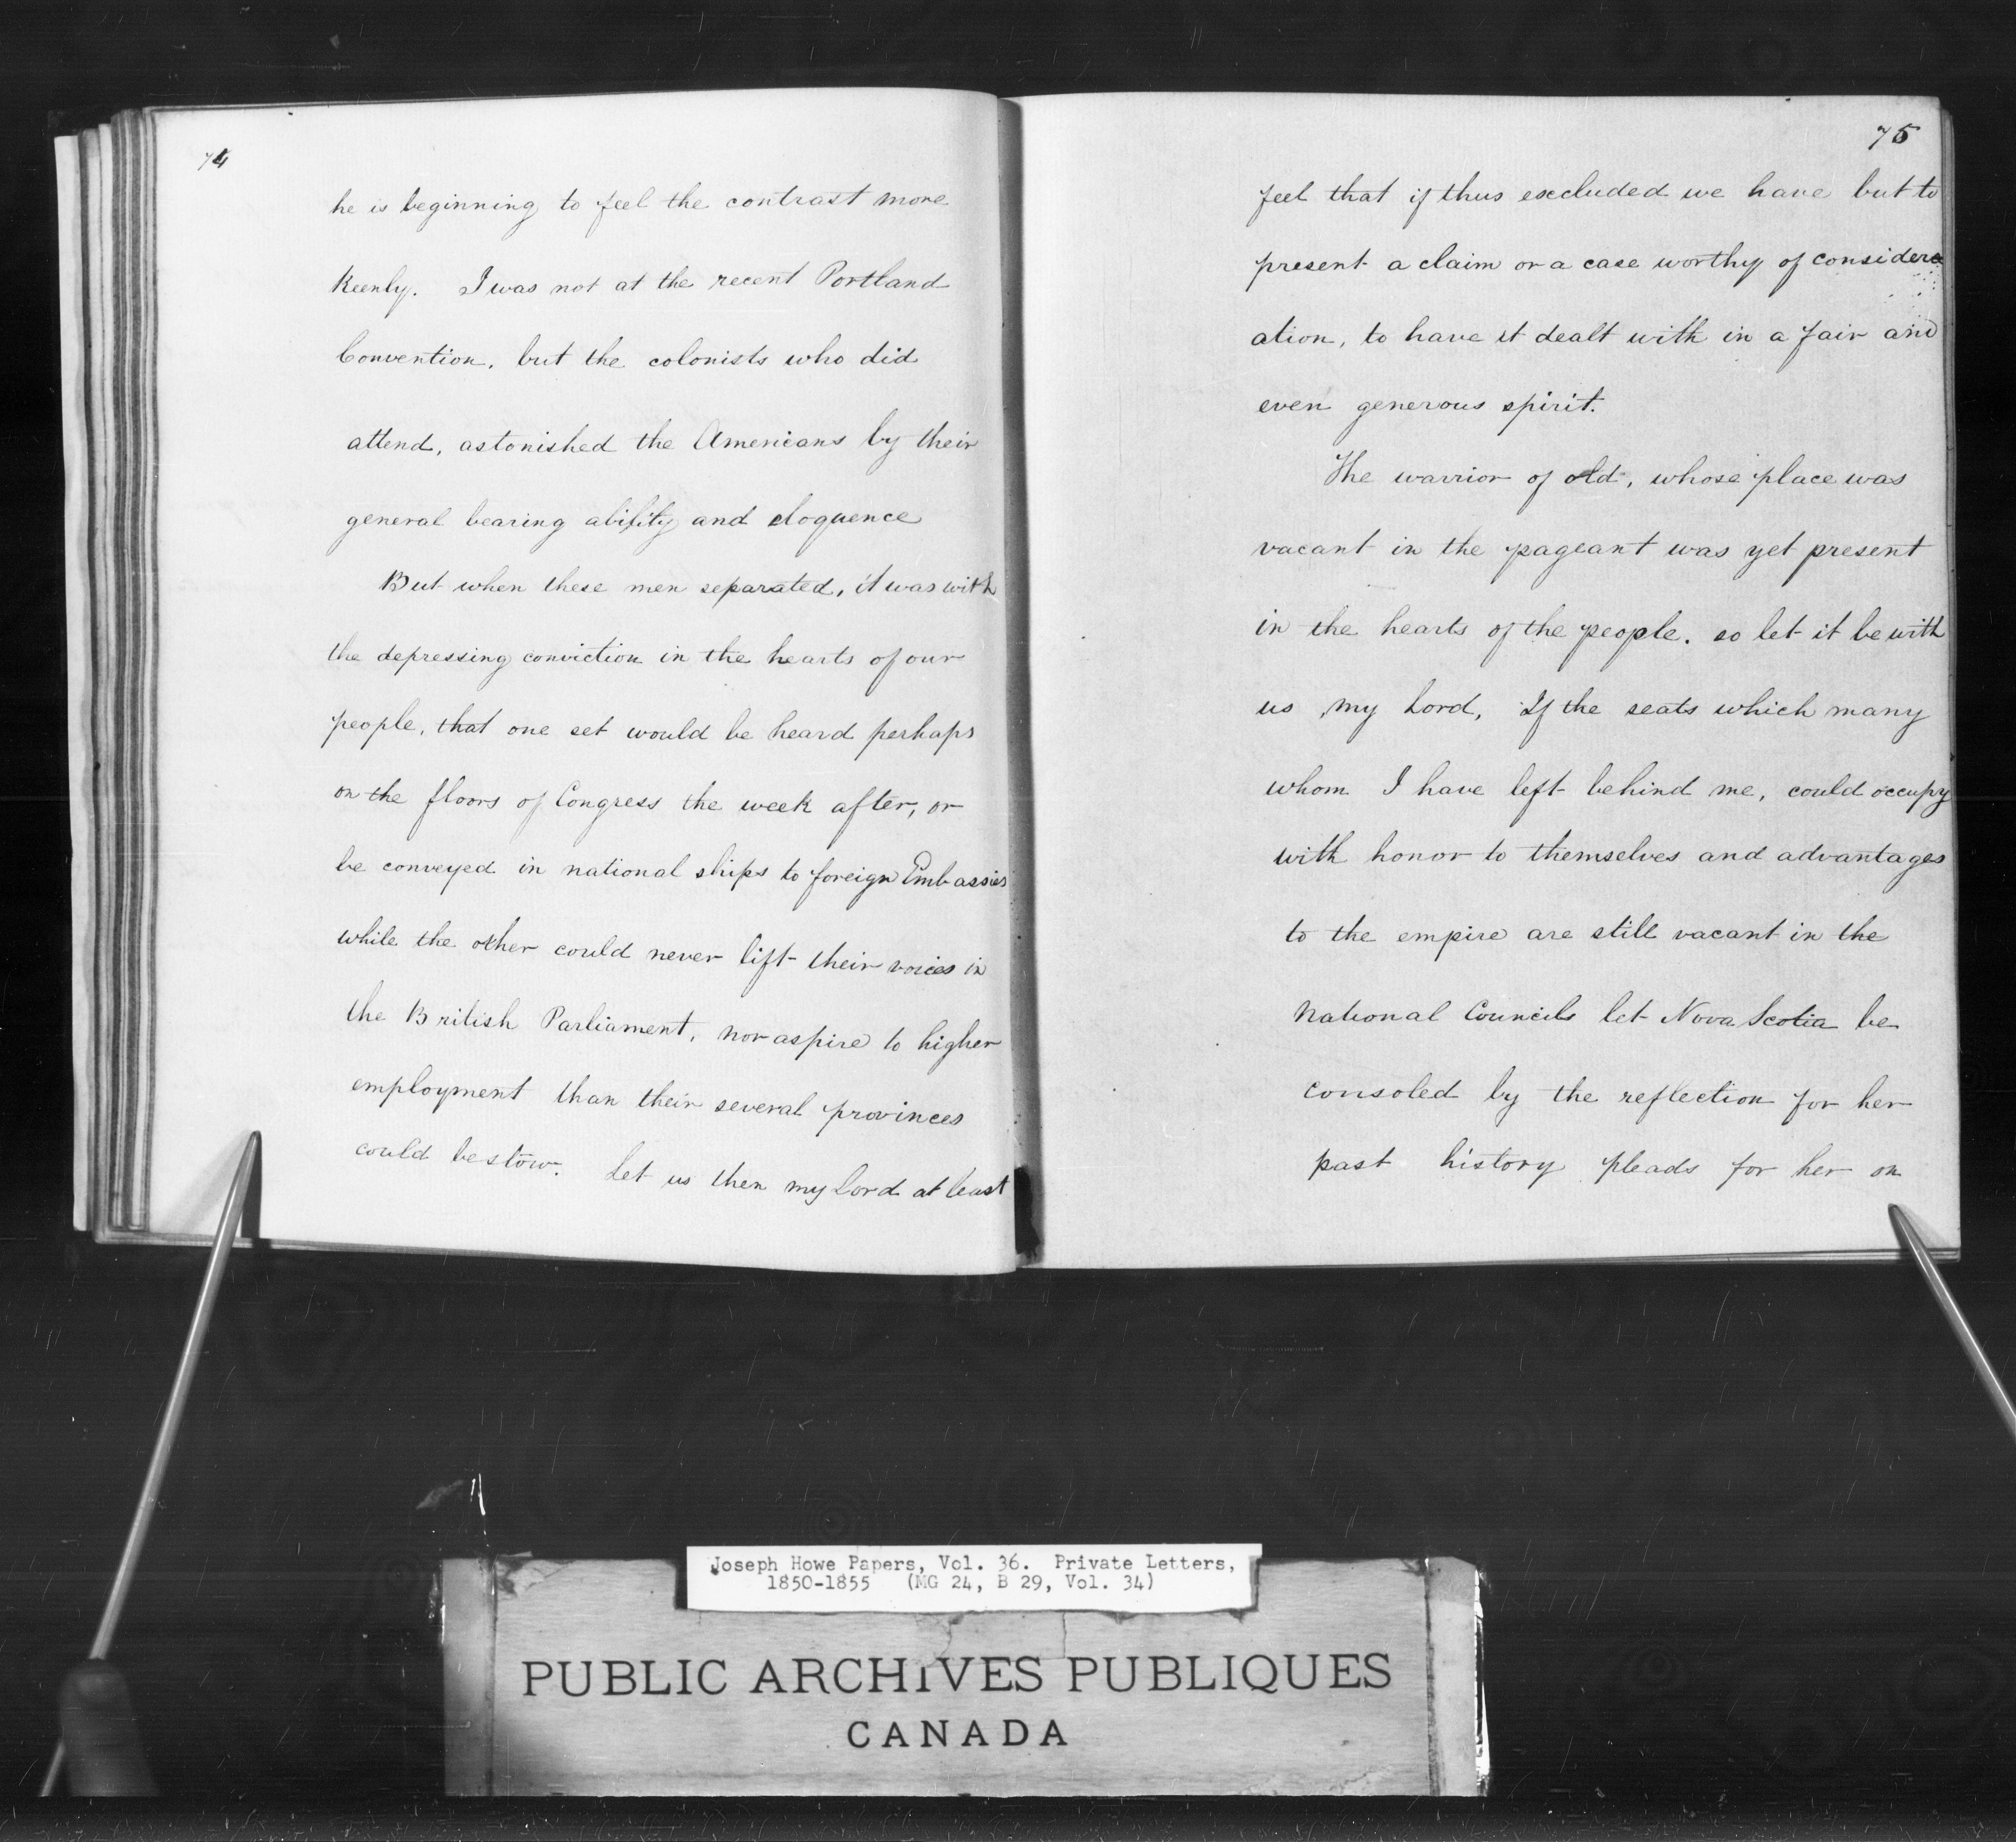 74
he is beginning to feel the contrast more
Keenly. I was not at the recent Portland
Convention, but the colonists who did
attend, astonished the Americans by their
general bearing ability and eloquence
But when these men separated, it was with
the depressing conviction in the hearts of our
people, that one set would be heard perhaps
on the floors of Congress the week after, or
be conveyed in national ships to foreign Embassies
while the other could never lift their voices in
the British Parliament, nor aspire to higher
employment than their several provinces
could bestow. Let us then my Lord at least
75
feel that if thus excluded we have but to
present a claim or a case worthy of consider
ation, to have it dealt with in a fair and
even generous spirit.
The warrior of old, whose place was
vacant in the pageant was yet present
in the hearts of the people. so let it be with
us my Lord, If the seats which many
whom I have left behind me, could occupy
with honor to themselves and advantages
to the empire are still vacant in the
National Councils let Nova Scotia be
consoled by the reflection for her
past history pleads for her on
Joseph Howe Papers, Vol. 36. Private Letters,
1850-1855 (MG 24, B 29, Vol. 34)
PUBLIC ARCHIVES PUBLIQUES
CANADA